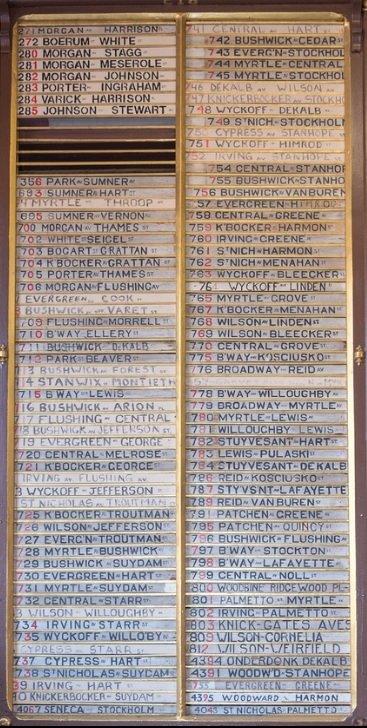 271 MORGAN - HARRISON
272 BOERUM - WHITE
280 MORGAN - STAGG
281 MORGAN - MESEROLE
282 MORGAN - JOHNSON
283 PORTER - INGRAHAM
284 VARICK - HARRISON
285 JOHNSON STEWART
356 PARK - SUMNER
693 SUMNER & HART
MYRTLE THROOP
695 SUMNER - VERNON
700 MORGAN AV THAMES ST
702 WHITE - SEIGEL ST
703 BOGART - GRATTAN
704 K'BOCKER - GRATTAN
705 PORTER AV THAMES ST
706 MORGAN - FLUSHING AV
EVERGREEN COOK
BUSHWICK VARET
709 FLUSHING - MORRELL
710 B'WAY - ELLERY
711 BUSHWICK DEKALB
712 PARK BEAVER
13 BUSHWICK FOREST
14 STANWIX MONTIETH
715 B'WAY - LEWIS
16 BUSHWICK ARION
17 FLUSHING CENTRAL
BUSHWICK JEFFERSON
19 EVERGREEN - GEORGE
720 CENTRAL - MELROSE
721 K'BOCKER - GEORGE
IRVING FLUSHING
3 WYCKOFF - JEFFERSON
ST NICHOLAS TROUTMAN
725 K'BOCKER - TROUTMAN
726 WILSON - JEFFERSON
727 EVERGN - TROUTMAN
728 MYRTLE - BUSHWICK
729 BUSHWICK - SUYDAM
730 EVERGREEN - HART
731 MYRTLE - SUYDAM
732 CENTRAL - STARR
3 WILSON WILLOUGHBY
734 IRVING - STARR
735 WYCKOFF - WILLOBY
CYPRESS STARR
737 CYPRESS - HART
738 S'NICHOLAS - SUYDAM
39 IRVING HART
0 KNICKERBOCKER - SUYDAM
4067 SENECA STOCKHOLM
741 CENTRAL HART
742 BUSHWICK - CEDAR
743 EVERG'N - STOCKHOL
744 MYRTLE - CENTRAL
745 MYRTLE - STOCKHOL
746 DEKALB AV WILSON
747 KNICKERBOCKER STOCKHO
748 WYCKOFF - DEKALB
749 S'NICH - STOCKHOL
750 CYPRESS STANHOPE
751 WYCKOFF - HIMROD
752 IRVING STANHOPE
754 CENTRAL - STANHO
755 BUSHWICK - STANHO
756 BUSHWICK - VANBUREN
57 EVERGREEN - HIMROD
758 CENTRAL - GREENE
759 K'BOCKER - HARMON
760 IRVING - GREENE
761 S'NICH - HARMON
762 S'NICH - MENAHAN
763 WYCKOFF - BLEECKER
764 WYCKOFF LINDEN
765 MYRTLE - GROVE
767 K'BOCKER - MENAHAN
768 WILSON - LINDEN
769 WILSON - BLEECKER
770 CENTRAL - GROVE
775 B'WAY - K'SCIUSKO
776 BROADWAY - REID AV
778 B'WAY - WILLOUGHBY
779 BROADWAY - MYRTLE
780 MYRTLE - LEWIS
781 WILLOUGHBY LEWIS
782 STUYVESANT - HART
783 LEWIS - PULASKI
784 STUYVESANT - DEKALB
786 REID - KOSCIUSKO
787 STYVSNT - LAFAYETTE
789 REID - VAN BUREN
791 PATCHEN - GREENE
795 PATCHEN - QUINCY
796 BUSHWICK - FLUSHING
797 B'WAY - STOCKTON
798 B'WAY - LAFAYETTE
799 CENTRAL - NOLL
800 WOODBINE RIDGEWOOD PL
801 PALMETTO - MYRTLE
802 IRVING - PALMETTO
803 KNICK - GATES AVES
809 WILSON - CORNELIA
812 WILSON - WEIRFIELD
4394 ONDERDONK DEKALB
4391 WOODW'D - STANHOPE
EVERGREEN GREENE
4395 WOODWARD HARMON
4043 ST NICHOLAS - PALMETTO